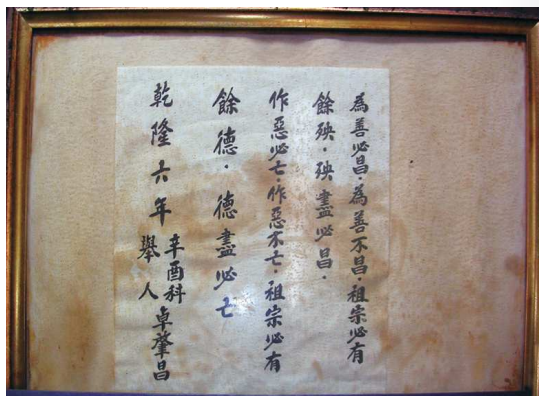 為善必昌·為善不昌·祖宗必有
餘殃·殃盡必昌·
作惡必亡·作惡不亡·祖宗必有
餘德·德盡必亡
乾隆六年 辛酉科 舉人 卓肇昌